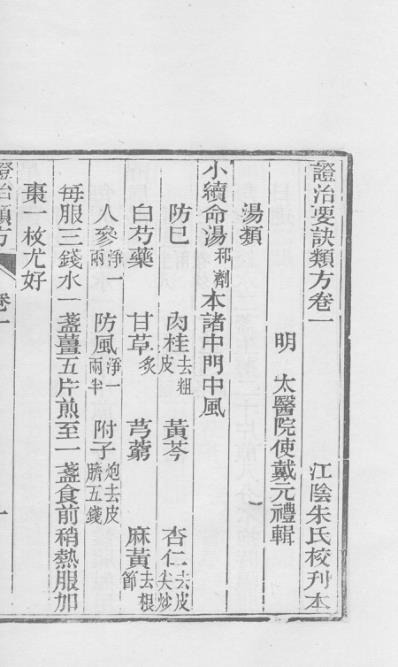 證治要訣類方卷一　江陰朱氏校刊本
明　太醫院使戴元禮輯
湯類
小續命湯　本諸中門中風
防巳　肉桂去粗皮　黃芩　杏仁去皮尖炒
白芍藥　甘草炙　芎藭　麻黃去根節
人參淨一兩　防風淨一兩半　附子炮去皮臍五錢
每服三錢水一盞薑五片煎至一盞食前稍熱服加
棗一枚尤好
證治類方　卷一　一